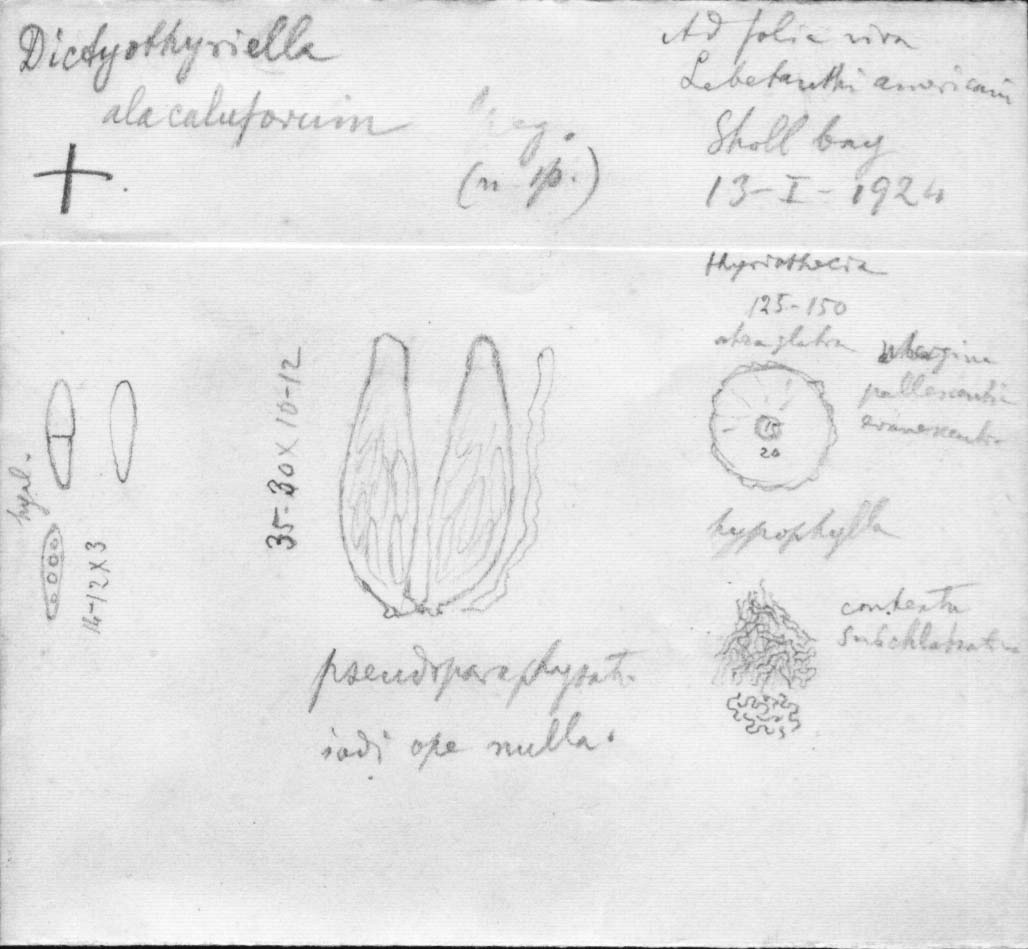 Dictyothyriella
alacaluforum Speg.
(n. sp.)
Ad folia viva
Lebetanthi americani
Sholl bay
13-I-1924
thyriothecia
125-150
atraglabra
margine
pallescenti
evanescenti
15
20
hypophylla
contextu
subclathrato
hyal.
14-12X3
35-30X10-12
pseudoparaphysati
iodi ope nulla.